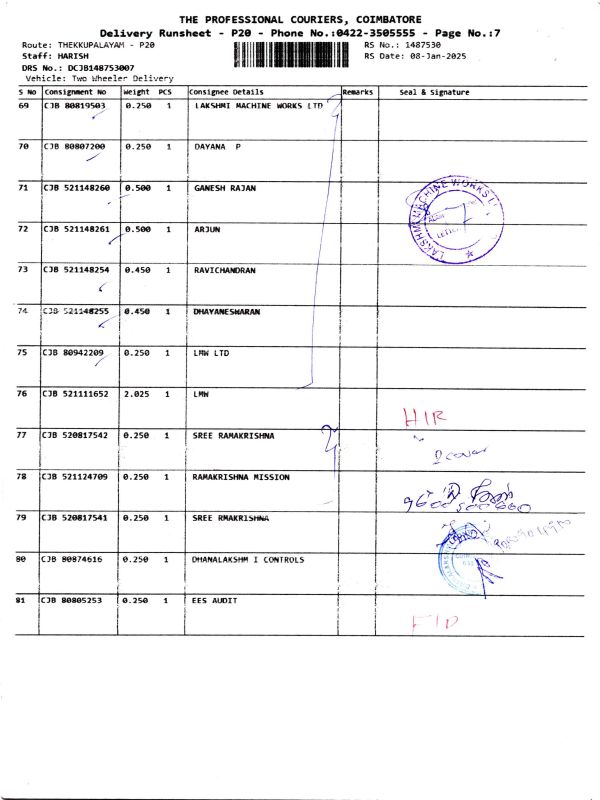 THE PROFESSIONAL COURIERS, COIMBATORE
Delivery Runsheet - P20 - Phone No.:0422-3505555 - Page No.:7
Route: THEKKUPALAYAM - P20 RS No.: 1487530
Staff: HARISH RS Date: 08-Jan-2025
DRS No.: DCJB148753007
Vehicle: Two Wheeler Delivery
S No Consignment No Weight PCS Consignee Details Remarks Seal & Signature
69 CJB 80819503 0.250 1 LAKSHMI MACHINE WORKS LTD
70 CJB 80807200 0.250 1 DAYANA P
71 CJB 521148260 0.500 1 GANESH RAJAN
LAKSHMI MACHINE WORKS
72 CJB 521148261 0.500 1 ARJUN
73 CJB 521148254 0.450 1 RAVICHANDRAN
74 CJB 521148255 0.450 1 DHAYANESWARAN
75 CJB 80942209 0.250 1 LMW LTD
76 CJB 521111652 2.025 1 LMW
HIR
77 CJB 520817542 0.250 1 SREE RAMAKRISHNA
2 cover
78 CJB 521124709 0.250 1 RAMAKRISHNA MISSION
79 CJB 520817541 0.250 1 SREE RMAKRISHNA
80 CJB 80874616 0.250 1 DHANALAKSHM I CONTROLS
81 CJB 80805253 0.250 1 EES AUDIT